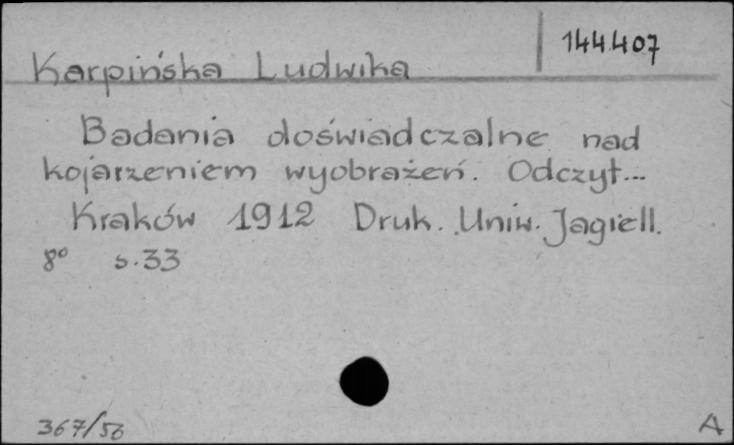 144.407
Karpińska Ludwika
Badania doświadczalne nad
kojarzeniem wyobrażeń. Odczyt...
Kraków 1912 Druk. Uniw. Jagiell.
8° s.33
367/56
A